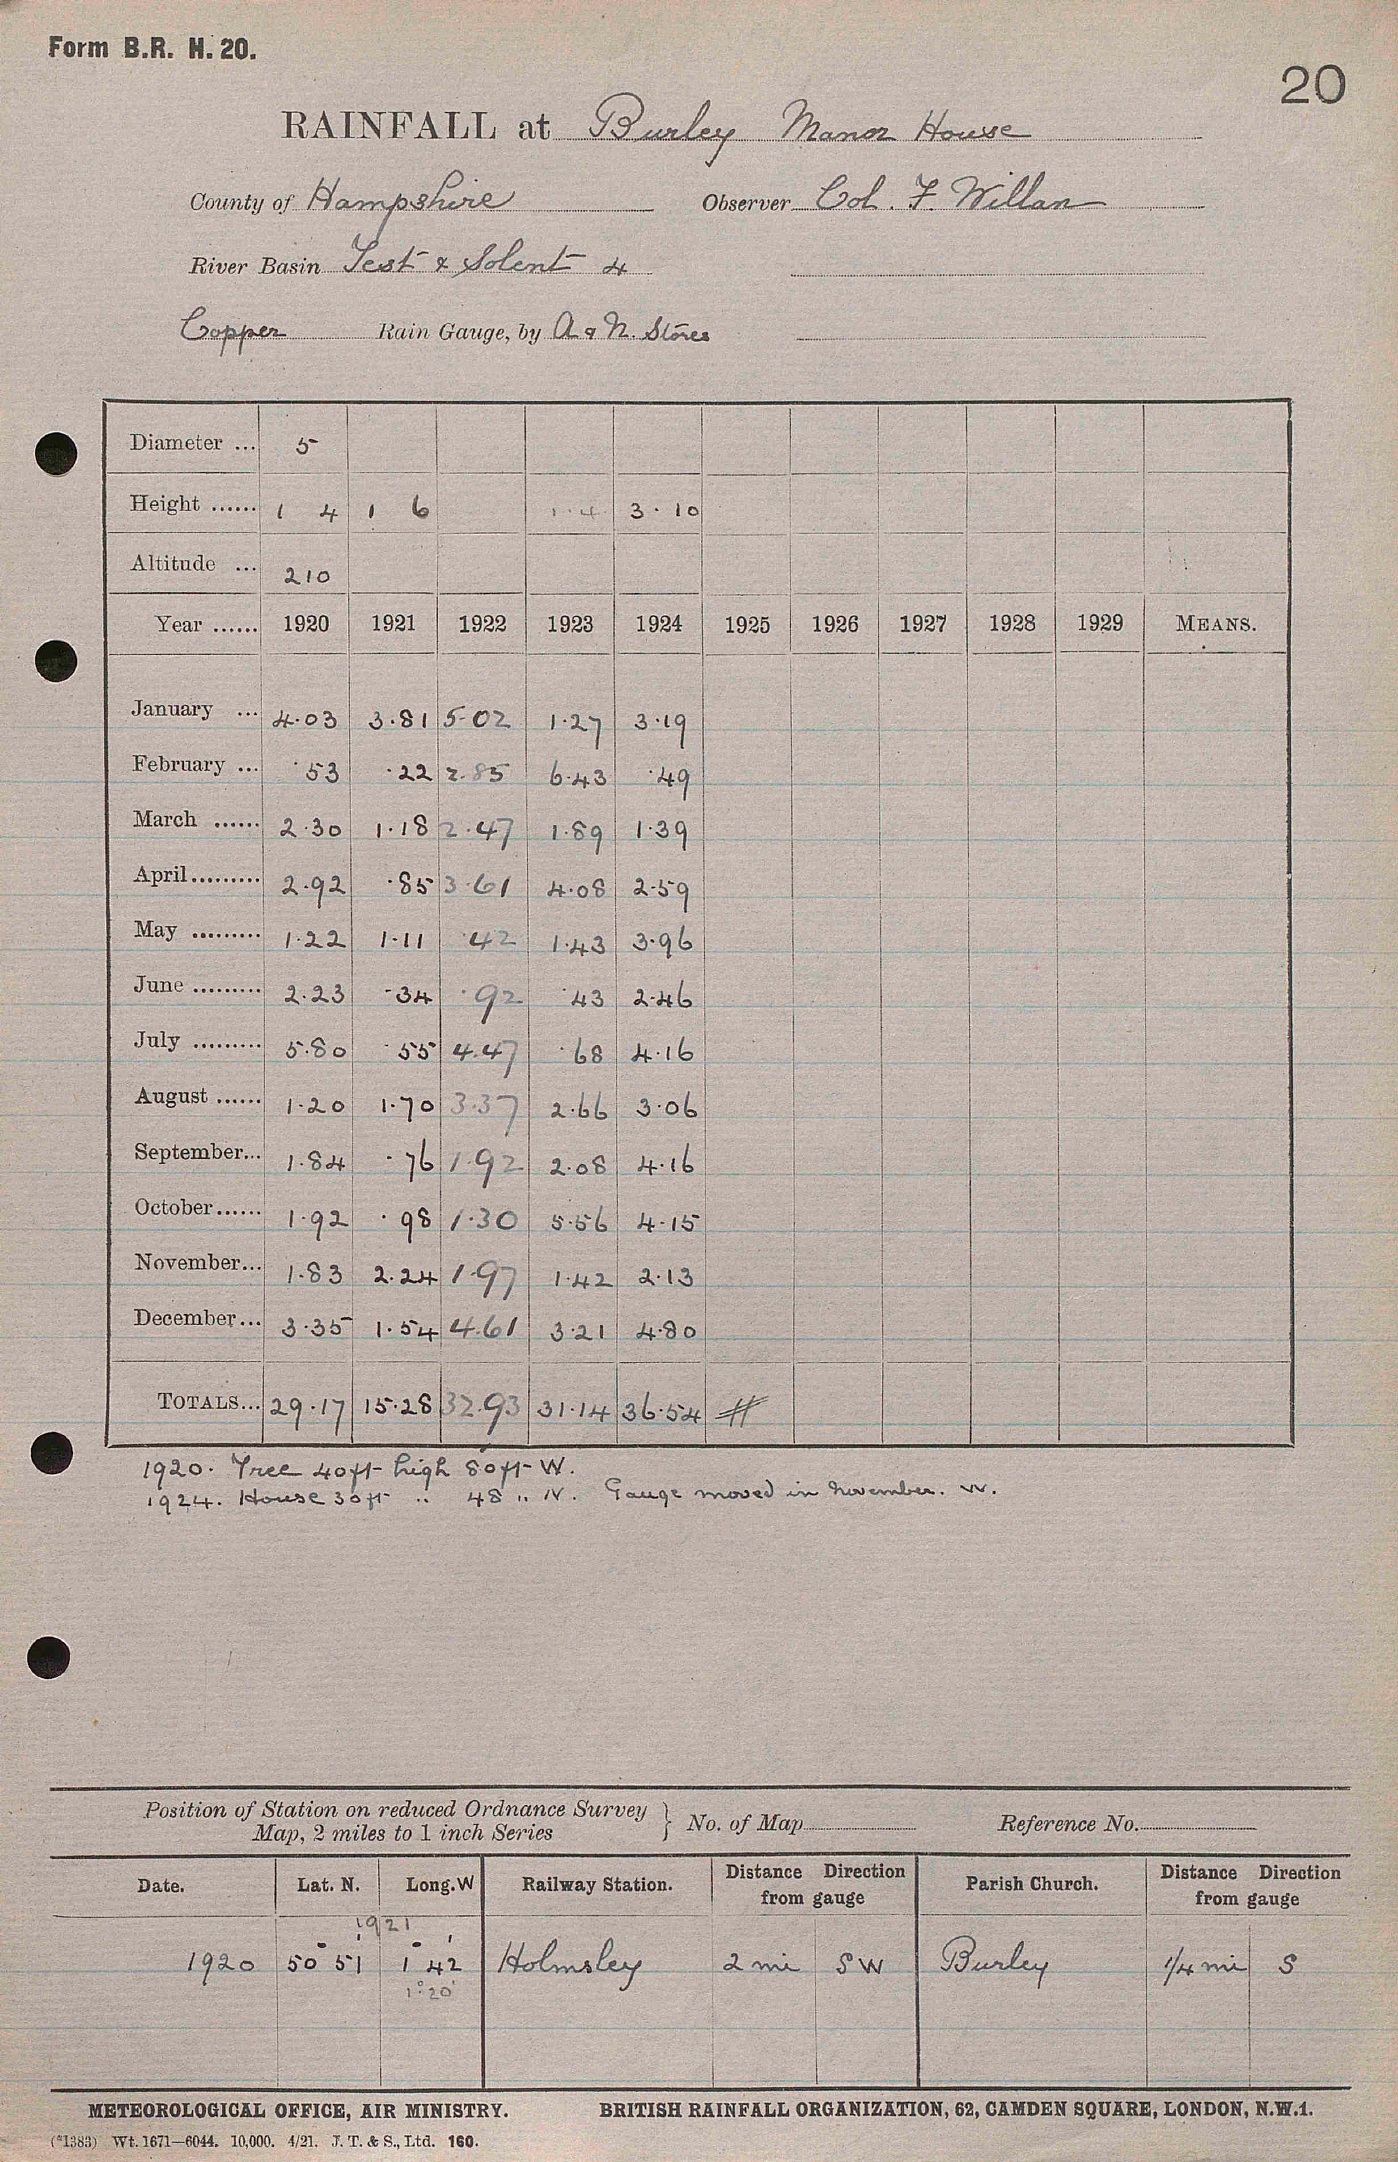 Form B.R. H. 20.
20
RAINFALL at Burley Manor House
County of Hampshire Observer Col. F. Willan
River Basin Test & Solent 4
Copper Rain Gauge, by A & N. Stores
Diameter ... 5
Height ...... 1 4 1 6 1·4 3·10
Altitude ... 210
Year ...... 1920 1921 1922 1923 1924 1925 1926 1927 1928 1929 MEANS.
January ... 4·03 3·81 5·02 1·27 3·19
February ... ·53 ·22 2·85 6·43 ·49
March ...... 2·30 1·18 2·47 1·89 1·39
April......... 2·92 ·85 3·61 4·08 2·59
May ......... 1·22 1·11 ·42 1·43 3·96
June ......... 2·23 ·34 ·92 ·43 2·46
July ......... 5·80 ·55 4·47 ·68 4·16
August ...... 1·20 1·70 3·37 2·66 3·06
September... 1·84 ·76 1·92 2·08 4·16
October...... 1·92 ·98 1·30 5·56 4·15
November... 1·83 2·24 1·97 1·42 2·13
December... 3·35 1·54 4·61 3·21 4·80
TOTALS... 29·17 15·28 32·93 31·14 36·54
1920. Tree 40ft high 80ft W.
1924. House 30ft „ 48 „ N. Gauge moved in november. W.
Position of Station on reduced Ordnance Survey
Map, 2 miles to 1 inch Series } No. of Map Reference No.
Date. Lat. N. Long. W Railway Station. Distance Direction from gauge Parish Church. Distance Direction from gauge
1921
1920 50° 51' 1° 42' Holmsley 2 mi SW Burley 1/4 mi S
1° 20'
METEOROLOGICAL OFFICE, AIR MINISTRY. BRITISH RAINFALL ORGANIZATION, 62, CAMDEN SQUARE, LONDON, N.W.1.
(*1383) Wt. 1671—6044. 10,000. 4/21. J. T. & S., Ltd. 160.